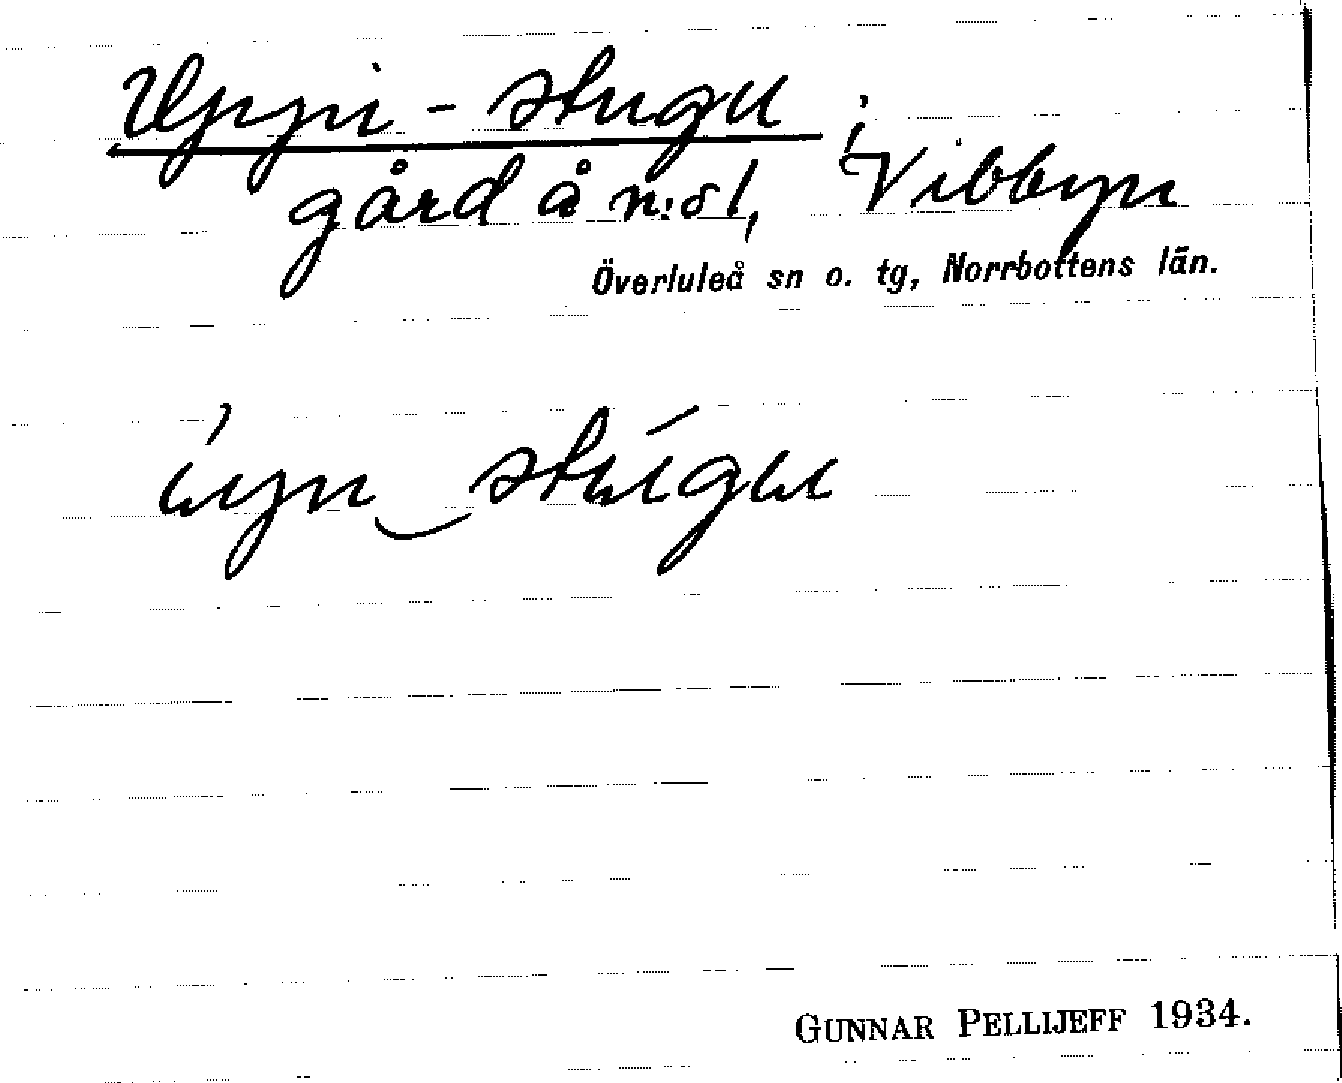 Uppi-stugu
gård å n:o 1, i Vibbyn
Överluleå sn o. tg, Norrbottens län.
GUNNAR PELLIJEFF 1934.